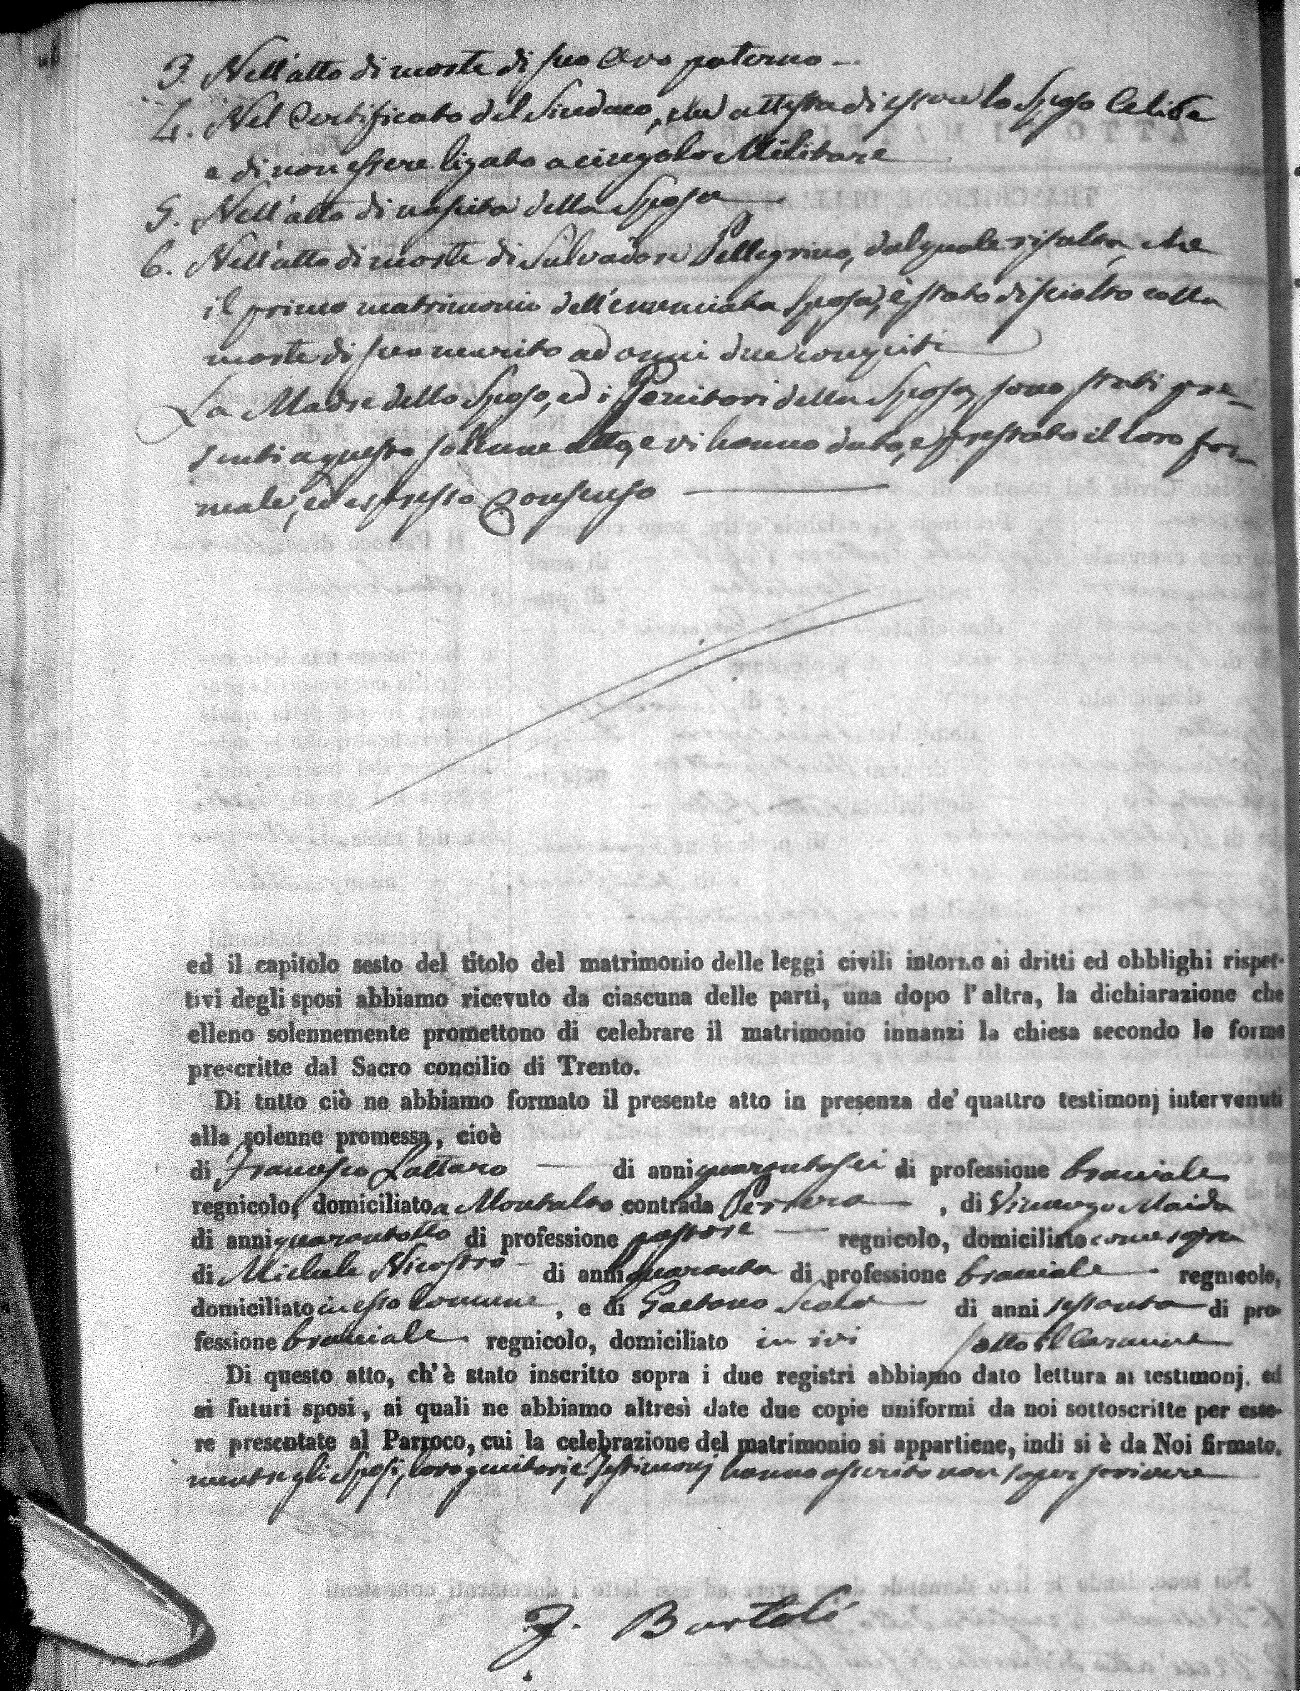 3. Nell'atto di morte di suo Avo paterno —
4. Nel Certificato del Sindaco, che attesta di essere lo Sposo Celibe
e di non essere ligato a cingolo Militare
5. Nell'atto di nascita della Sposa
6. Nell'atto di morte di Salvadore Pellegrino, dal quale risulta, che
il primo matrimonio dell'enunciata Sposa, è stato disciolto colla
morte di suo marito ad
La Madre dello Sposo, ed i Genitori della Sposa, sono stati pre-
senti a questo sollenne atto, e vi hanno dato, e prestato il loro for-
male, ed espresso Consenso
ed il capitolo sesto del titolo del matrimonio delle leggi civili intorno ai dritti ed obblighi rispet-
tivi degli sposi abbiamo ricevuto da ciascuna delle parti, una dopo l'altra, la dichiarazione che
elleno solennemente promettono di celebrare il matrimonio innanzi la chiesa secondo le forme
prescritte dal Sacro concilio di Trento.
Di tutto ciò ne abbiamo formato il presente atto in presenza de' quattro testimonj intervenuti
alla solenne promessa, cioè
di Francesco Lattaro — di anni quarantasei di professione bracciale
regnicolo, domiciliato a Montalto contrada , di Vincenzo Maida
di anni quarantotto di professione pastore — regnicolo, domiciliato come sopra
di Michele Nicastro — di anni quaranta di professione bracciale — regnicolo,
domiciliato in esso Comune , e di Gaetano Scola di anni sessanta di pro-
fessione bracciale regnicolo, domiciliato in ivi sotto il
Di questo atto, ch'è stato inscritto sopra i due registri abbiamo dato lettura ai testimonj, ed
ai futuri sposi, ai quali ne abbiamo altresì date due copie uniformi da noi sottoscritte per esse-
re presentate al Parroco, cui la celebrazione del matrimonio si appartiene, indi si è da Noi firmato,
mentre gli Sposi, loro genitori, e testimonj hanno asserito non saper scrivere
F. Bartoli